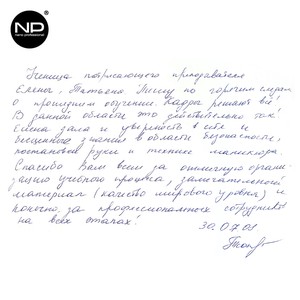 NP
nano professional
Ученица потрясающего преподавателя
Елены, Татьяна Пишу по горячим следам
о прошедшем обучении. Кадры решают всё!
В данной области это действительно так!
Елена дала и уверенность в себе и
бесценные знания в области безопасности,
постановки руки и техники маникюра.
Спасибо Вам всем за отличную органи-
зацию учебного процесса, замечательный
материал (качество мирового уровня) и
конечно за профессиональных сотрудников
на всех этапах!
30.07.01